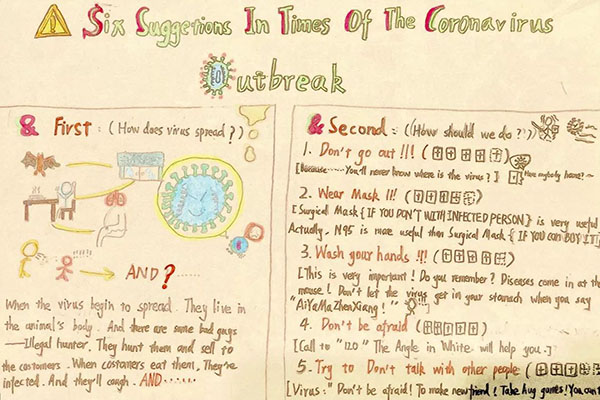 Six Suggetions In Times Of The Coronavirus
Outbreak
& First: (How does virus spread?)
AND?......
When the virus begin to spread. They live in
the animal's body. And there are some bad guys
—Illegal hunter. They hunt them and sell to
the costomers. When costomers eat them, They're
infected. And they'll cough. AND......
& Second: (How should we do?)
1. Don't go out!!! (
[Because......You'll never know where is the virus?] Here anybody home?~
2. Wear Mask!!! (
[Surgical Mask{IF YOU DON'T WITH INFECTED PERSON} is very useful
Actually. N95 is more useful then Surgical Mask{IF YOU CAN BUY IT}]
3. Wash your hands!!! (
[This is very important! Do you remember? Diseases come in at the
mouse! Don't let the virus get in your stonach when you say
"AiYaMaZhenXiang!"
4. Don't be afraid (
[Call to "120" The Angle in White will help you.]
5. Try to Don't talk with other people (
[Virus:" Don't be afraid! To make new friend! Take hug games! You can't